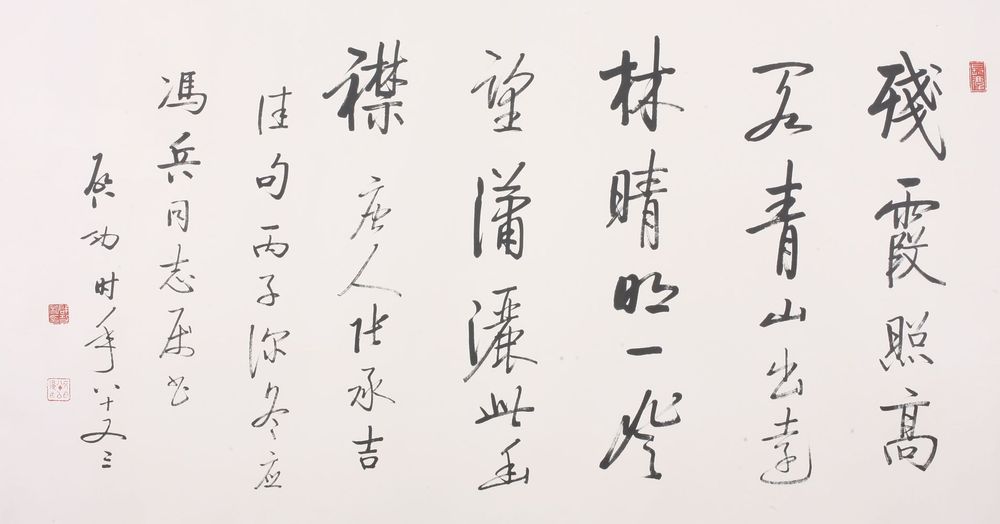 殘霞照高
閣青山出遠
林晴明一登
望瀟灑此幽
襟 唐人张承吉
佳句丙子深冬应
馮兵同志属书
启功时年八十又三